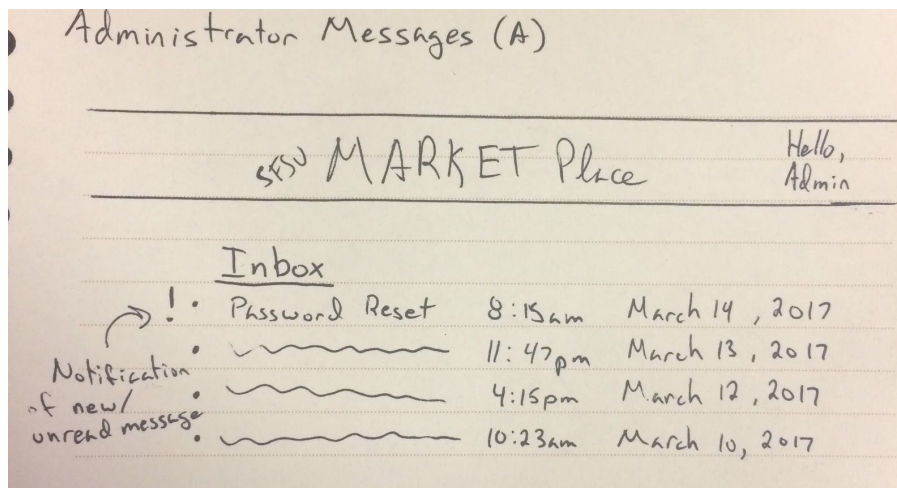 Administrator Messages (A)
SFSU MARKET Place
Hello,
Admin
Inbox
! • Password Reset 8:15am March 14, 2017
• 11:47pm March 13, 2017
• 4:15pm March 12, 2017
• 10:23am March 10, 2017
Notification
of new/
unread message